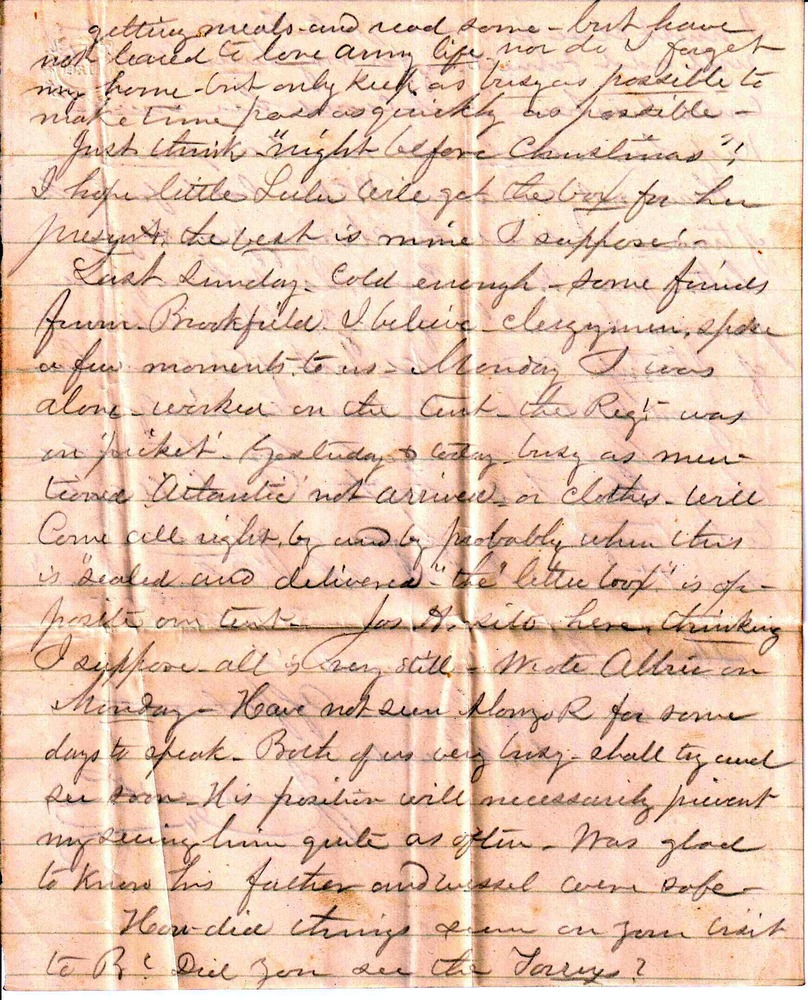 getting meals and read some - but have
not leared to love army life nor do I forget
my home - but only keep as busy as possible to
make time pass as quickly as possible -
Just think "night before Christmas"!
I hope little Lulu will get the box for her
present, the best is mine I suppose -
Last Sunday - Cold enough - some friends
from Brookfield I believe - clergymen, spoke
a few moments to us - Monday I was
alone - worked on the tent - the Regt was
on 'picket'. Yesterday & today busy as men-
tioned 'Atlantic' not arrived - or clothes - will
Come all right, by and by probably when this
is "sealed and delivered" - "the letter box" is op-
posite our tent - Jos H. sits here thinking
I suppose - all is very still - Wrote Abbie on
Monday - Have not seen Alonzo R for some
days to speak - Both of us very busy - shall try and
see soon - His position will necessarily prevent
my seeing him quite as often - Was glad
to know his father and vessel were safe -
How did things seem on your visit
to B? Did you see the Torreys?